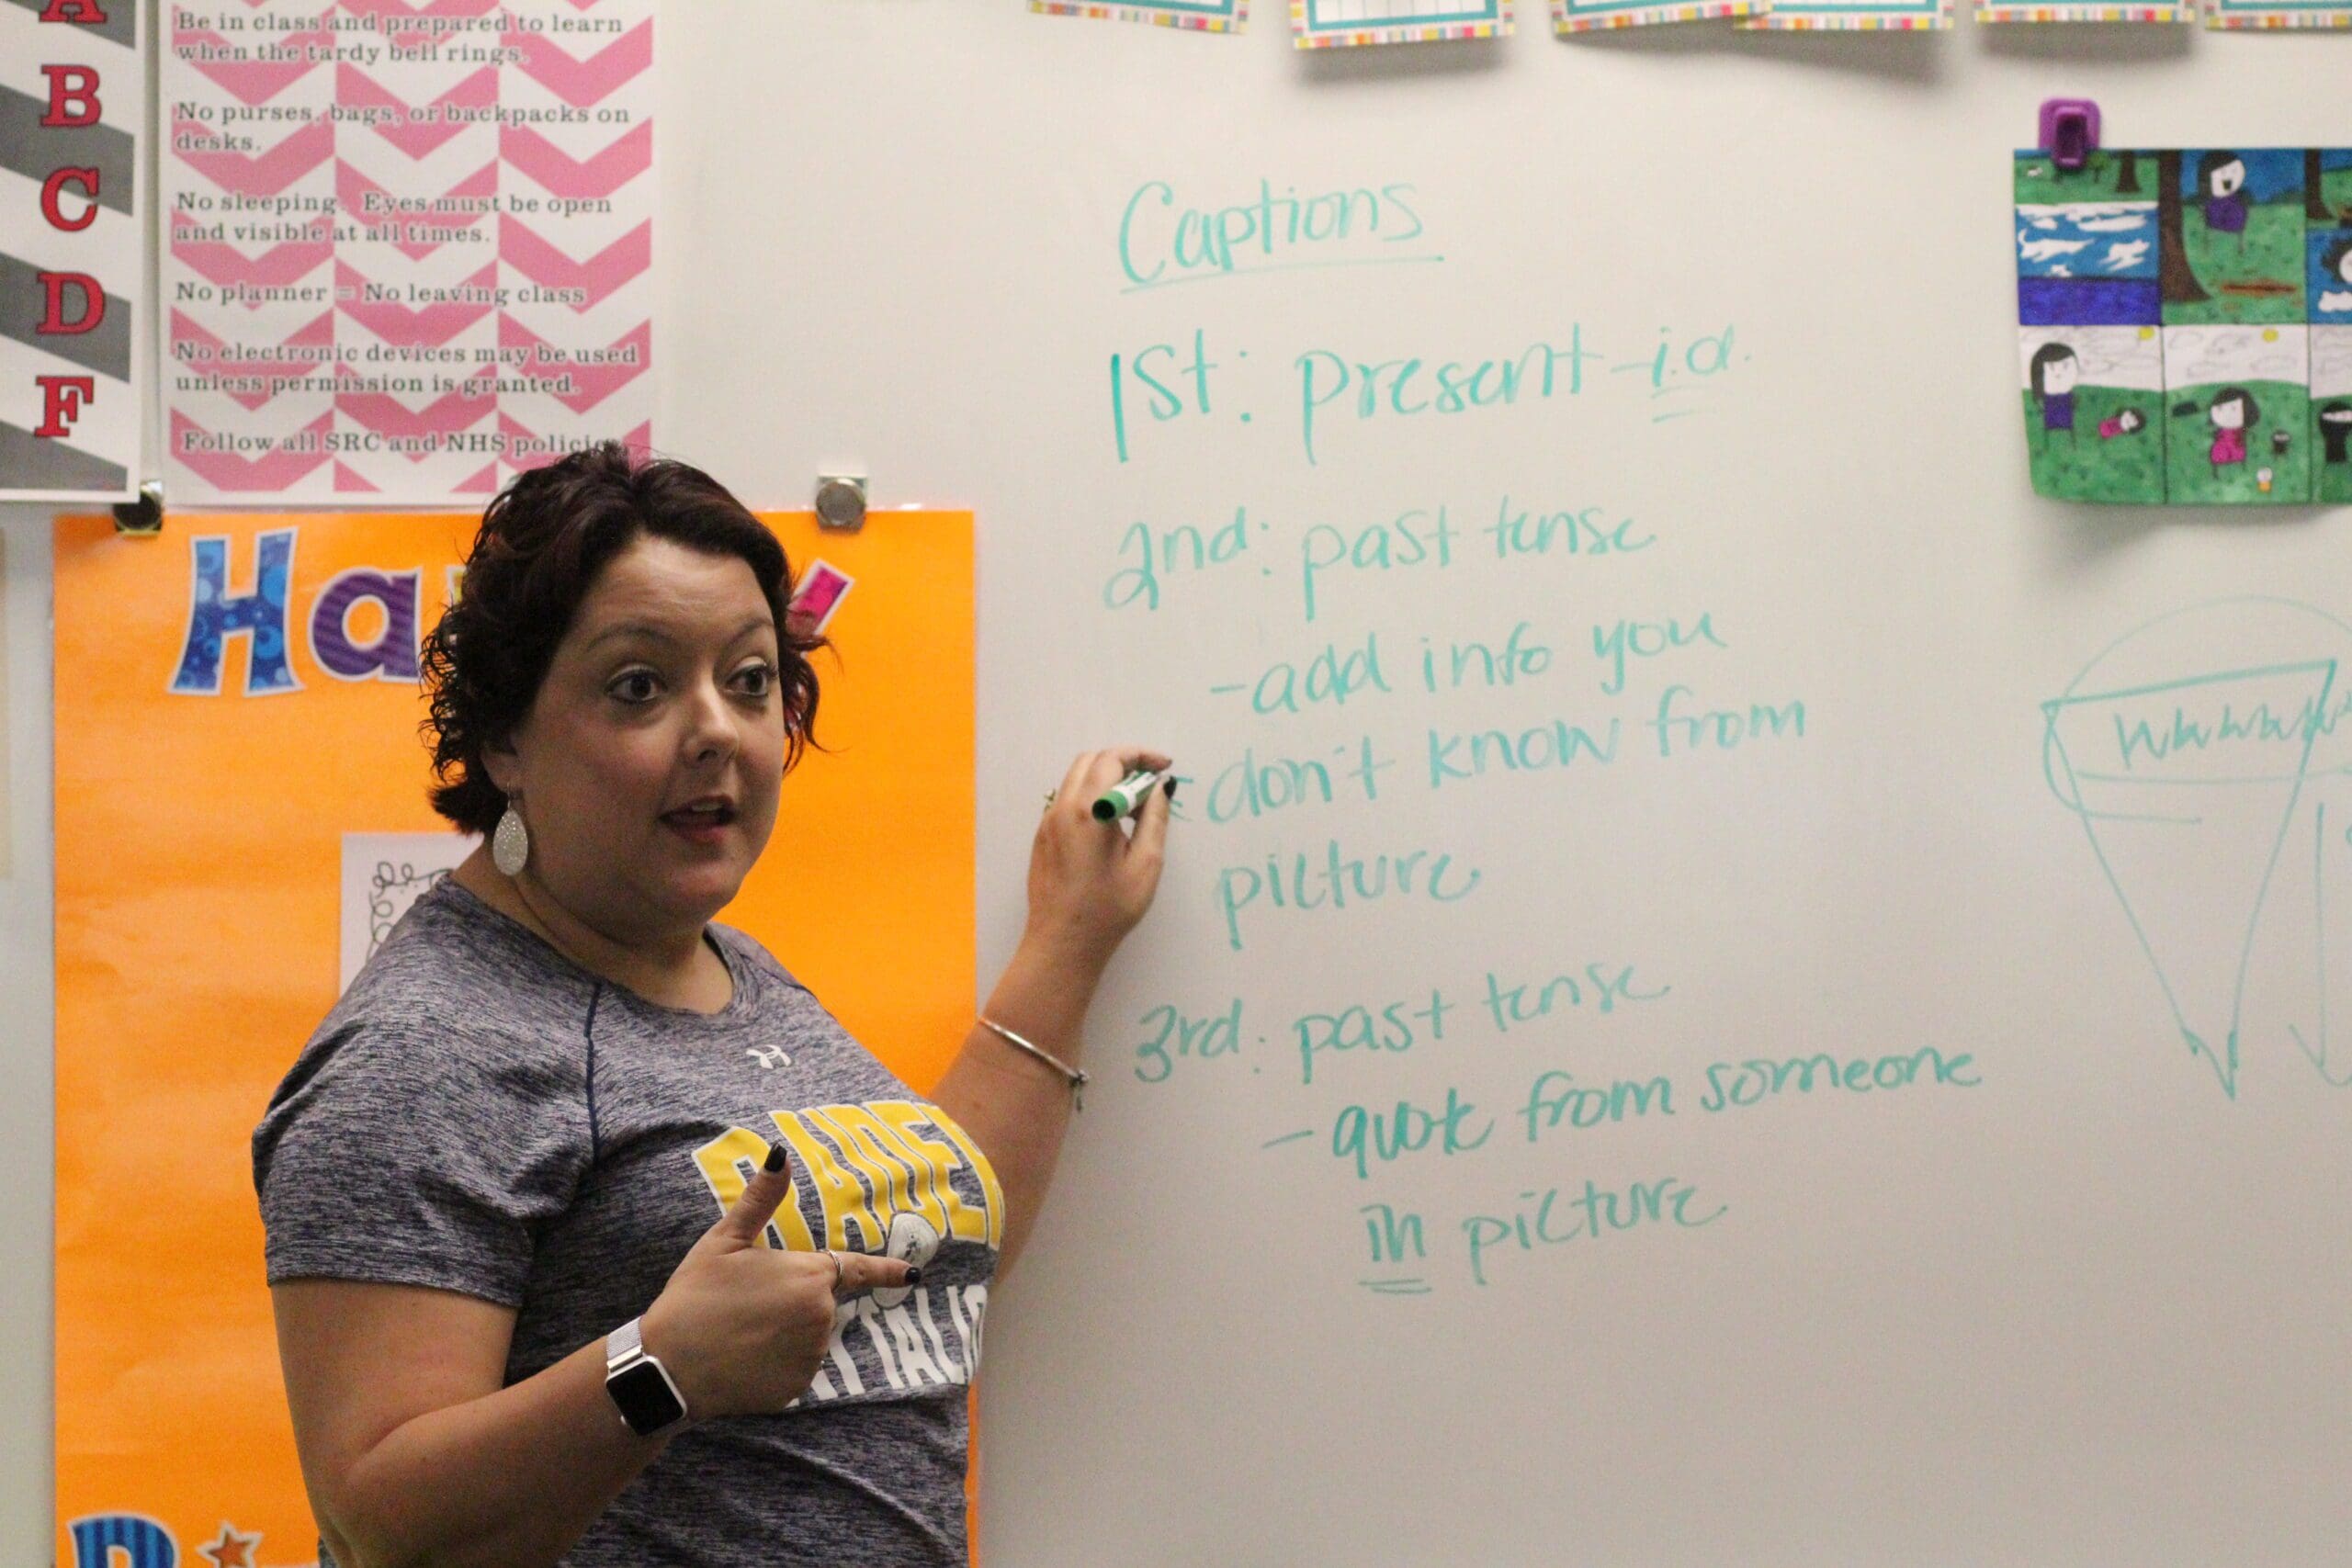 A
B
C
D
F
Be in class and prepared to learn
when the tardy bell rings.
No purses, bags, or backpacks on
desks.
No sleeping. Eyes must be open
and visible at all times.
No planner = No leaving class
No electronic devices may be used
unless permission is granted.
Follow all SRC and NHS
Ha
Captions
1st: present-i.d.
2nd: past tense
-add info you
don't know from
picture
3rd: past tense
- quote from someone
in picture
RAIDER